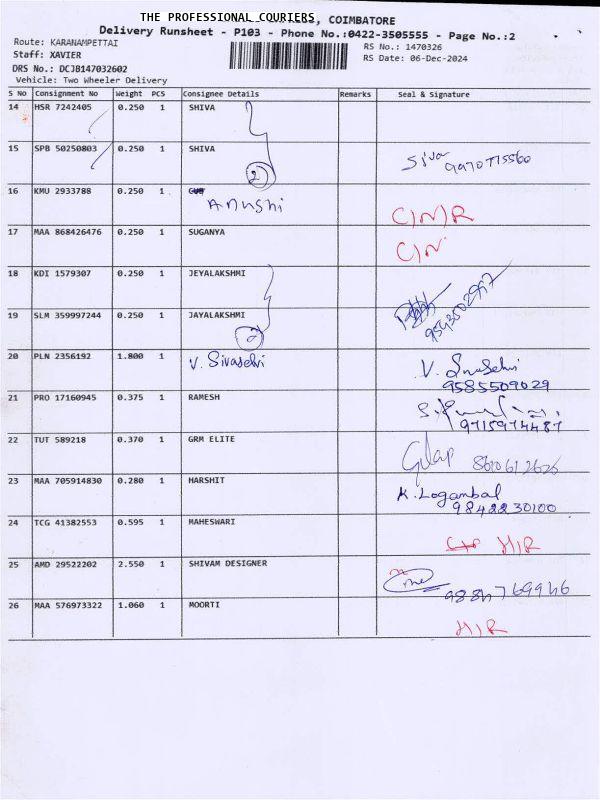 THE PROFESSIONAL COURIERS, COIMBATORE
Delivery Runsheet - P103 - Phone No.:0422-3505555 - Page No.:2
Route: KARANAMPETTAI RS No.: 1470326
Staff: XAVIER RS Date: 06-Dec-2024
DRS No.: DCJB147032602
Vehicle: Two Wheeler Delivery
S No Consignment No Weight PCS Consignee Details Remarks Seal & Signature
14 HSR 7242405 0.250 1 SHIVA
15 SPB 50250803 0.250 1 SHIVA Siva
2
16 KMU 2933788 0.250 1 Anushi C/N/R
17 MAA 868426476 0.250 1 SUGANYA C/N
18 KDI 1579307 0.250 1 JEYALAKSHMI
19 SLM 359997244 0.250 1 JAYALAKSHMI
20 PLN 2356192 1.800 1 V. Sivaselvi V. Sivaselvi
9585509029
21 PRO 17160945 0.375 1 RAMESH
9715974487
22 TUT 589218 0.370 1 GRM ELITE
23 MAA 705914830 0.280 1 HARSHIT K. Logambal
9842230100
24 TCG 41382553 0.595 1 MAHESWARI
25 AMD 29522202 2.550 1 SHIVAM DESIGNER
26 MAA 576973322 1.060 1 MOORTI